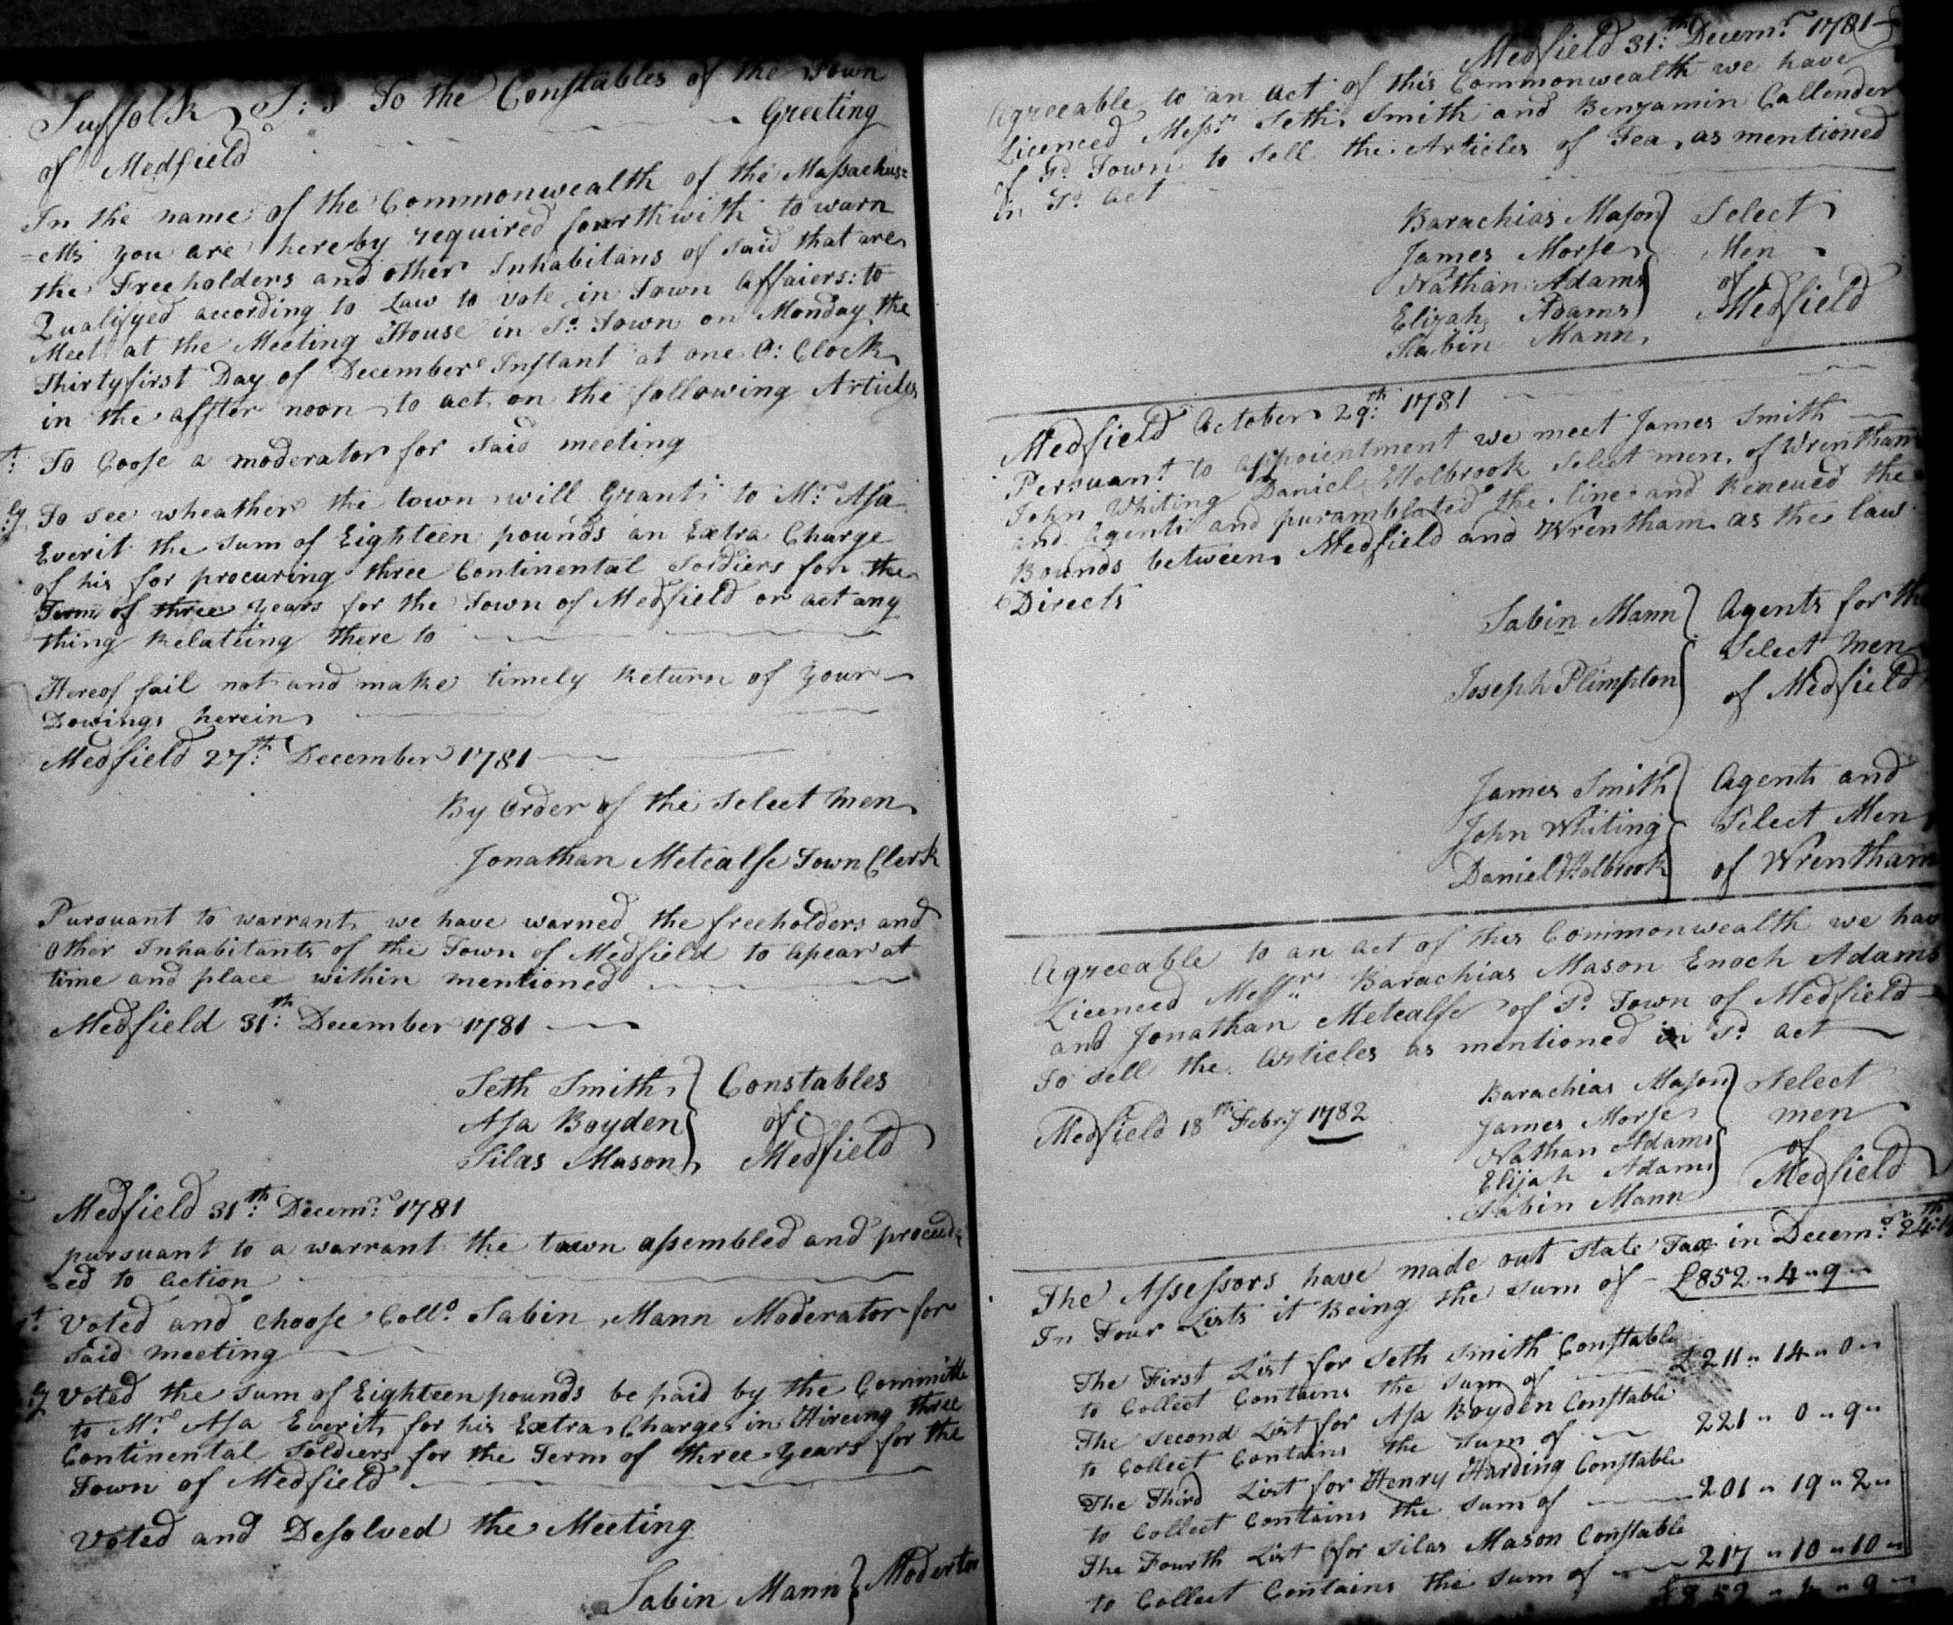 Suffolk S:s To the Constables of the Town
of Medfield Greeting
In the name of the Commonwealth of the Massachus=
=etts you are hereby required fourthwith to warn
the Freeholders and other Inhabitans of said that are
Qualifyed according to Law to vote in Town affaiers: to
Meet at the Meeting House in sd. Town on Monday the
Thirtyfirst Day of December Instant at one O: Clock
in the affter noon to act on the following Articles
1t: To Coose a moderator for said meeting
2ly To see wheather the town will Grant to Mr. Asa
Everit the sum of Eighteen pounds an Extra Charge
of his for procuring three Continental Soldiers for the
Term of three years for the Town of Medfield or act any
thing Relateing there to
Hereof fail not and make timely Return of your
Dowings herein
Medfield 27th: December 1781
By order of the Select men
Jonathan Metcalfe Town Clerk
Pursuant to warrant we have warned the freeholders and
other Inhabitants of the Town of Medfield to apear at
time and place within mentioned
Medfield 31th: December 1781
Seth Smith } Constables
Asa Boyden } of
Silas Mason } Medfield
Medfield 31th: Decemr. 1781
pursuant to a warrant the town assembled and proceed=
=ed to action
1t. Voted and choose Collo. Sabin Mann Moderator for
said meeting
2ly Voted the sum of Eighteen pounds be paid by the Committe
to Mr. Asa Everit for his Extra Charge in Hireing three
Continental Soldiers for the Term of three years for the
Town of Medfield
Voted and Desolved the Meeting
Sabin Mann } Moderter
Medfield 31th: Decemr. 1781
Agreeable to an act of this Commonwealth we have
Licenced Messrs. Seth Smith and Benjamin Callender
of sd. Town to sell the Articles of Tea, as mentioned
in sd. act
Barachias Mason } Select
James Morse } Men
Nathan Adams } of
Elijah Adams } Medfield
Sabin Mann
Medfield October 29th: 1781
Persuant to appointment we meet James Smith
John Whiting Daniel Holbrook select men of Wrentham
and Agents and purambleted the line and Renewed the
Bounds between Medfield and Wrentham as the law
Directs
Sabin Mann } Agents for the
Select men
Joseph Plimpton } of Medfield
James Smith } Agents and
John Whiting } Select Men
Daniel Holbrook } of Wrentham
Agreeable to an act of this Commonwealth we hav
Licenced Messrs. Barachias Mason Enoch Adams
and Jonathan Metcalfe of sd. Town of Medfield
To sell the Articles as mentioned in sd. act
Medfield 18th Febry 1782
Barachias Mason } Select
James Morse } men
Nathan Adams } of
Elijah Adams } Medfield
Sabin Mann
The Assessors have made out State Tax in Decemr. 24th
In Four Lists it Being the sum of £852 " 4 " 9
The First List for Seth Smith Constable
to Collect Contains the sum of £211 " 14 " 0
The second List for Asa Boyden Constable
to Collect Contains the sum of 221 " 0 " 9
The Third List for Henry Harding Constable
to Collect Contains the sum of 201 " 19 " 2
The Fourth List for Silas Mason Constable
to Collect Contains the sum of 217 " 10 " 10
£852 " 4 " 9